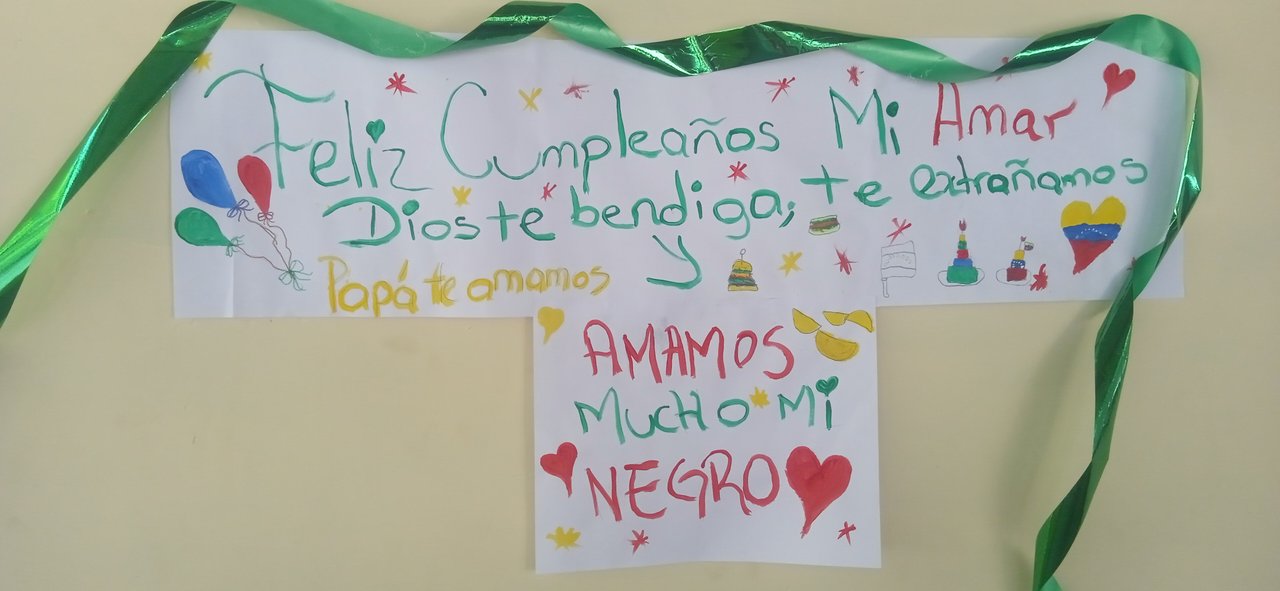 Feliz Cumpleaños Mi Amar
Dios te bendiga; te extrañamos
y
Papá te amamos
AMAMOS
MUCHO MI
NEGRO